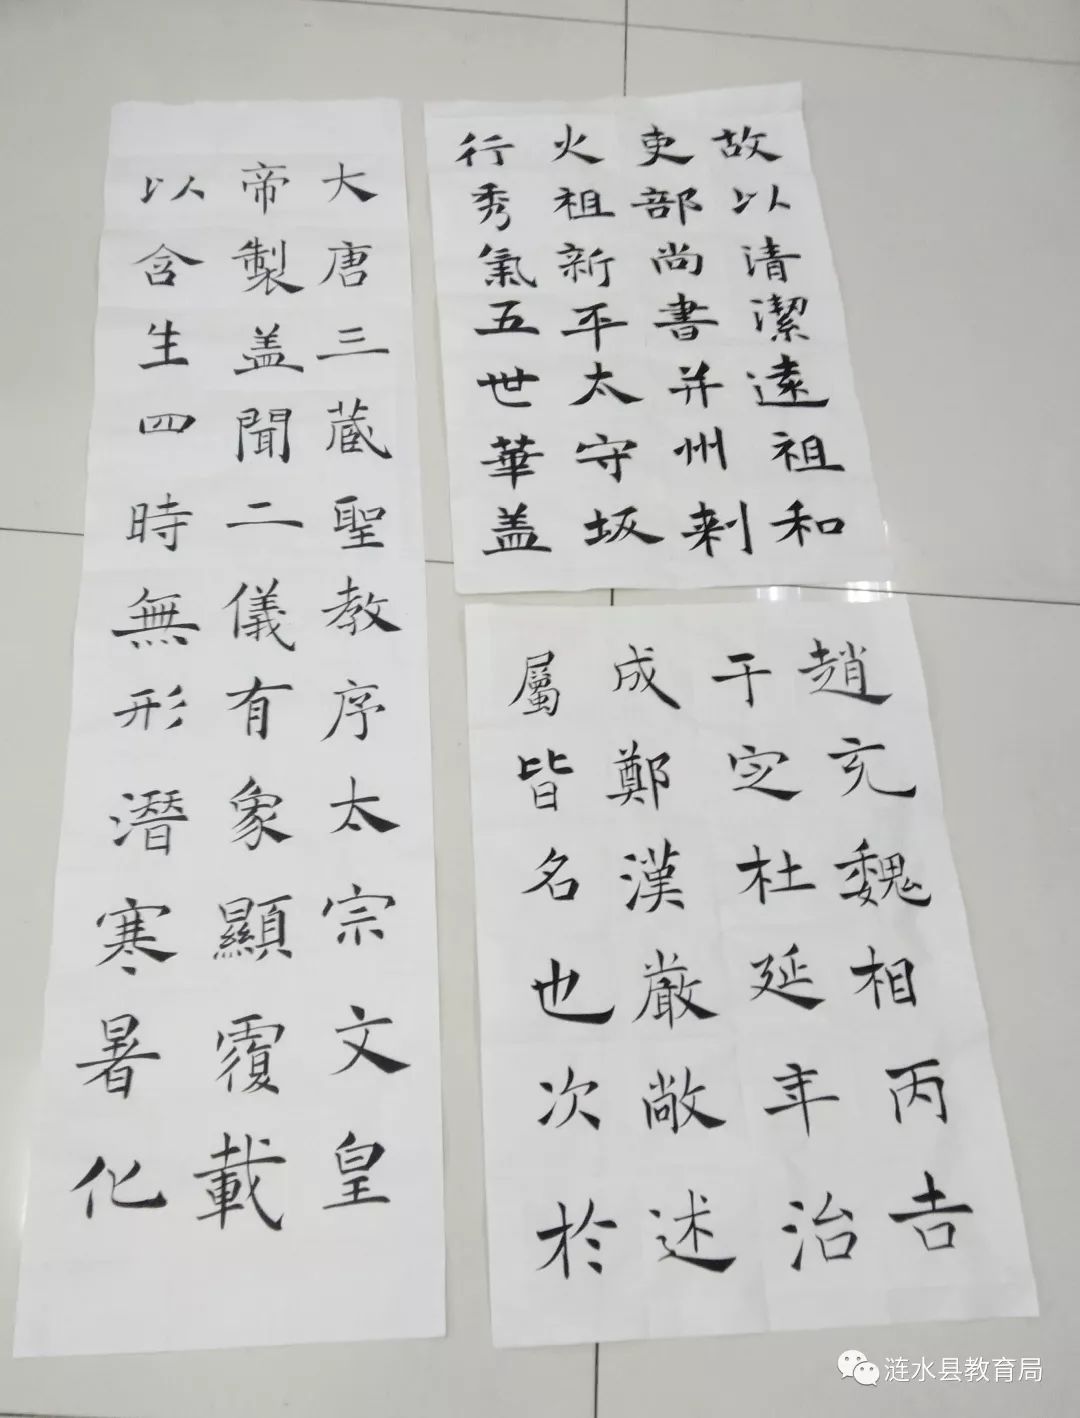 大唐三蔵聖教序太宗文皇
帝製盖聞二儀有象顯覆載
以含生四時無形潛寒暑化
故以清潔遠祖和
吏部尚書并州刺
火祖新平太守坂
行秀氣五世華盖
趙充魏相丙吉
于定杜延年治
成鄭漢嚴敞述
屬皆名也次於
涟水县教育局